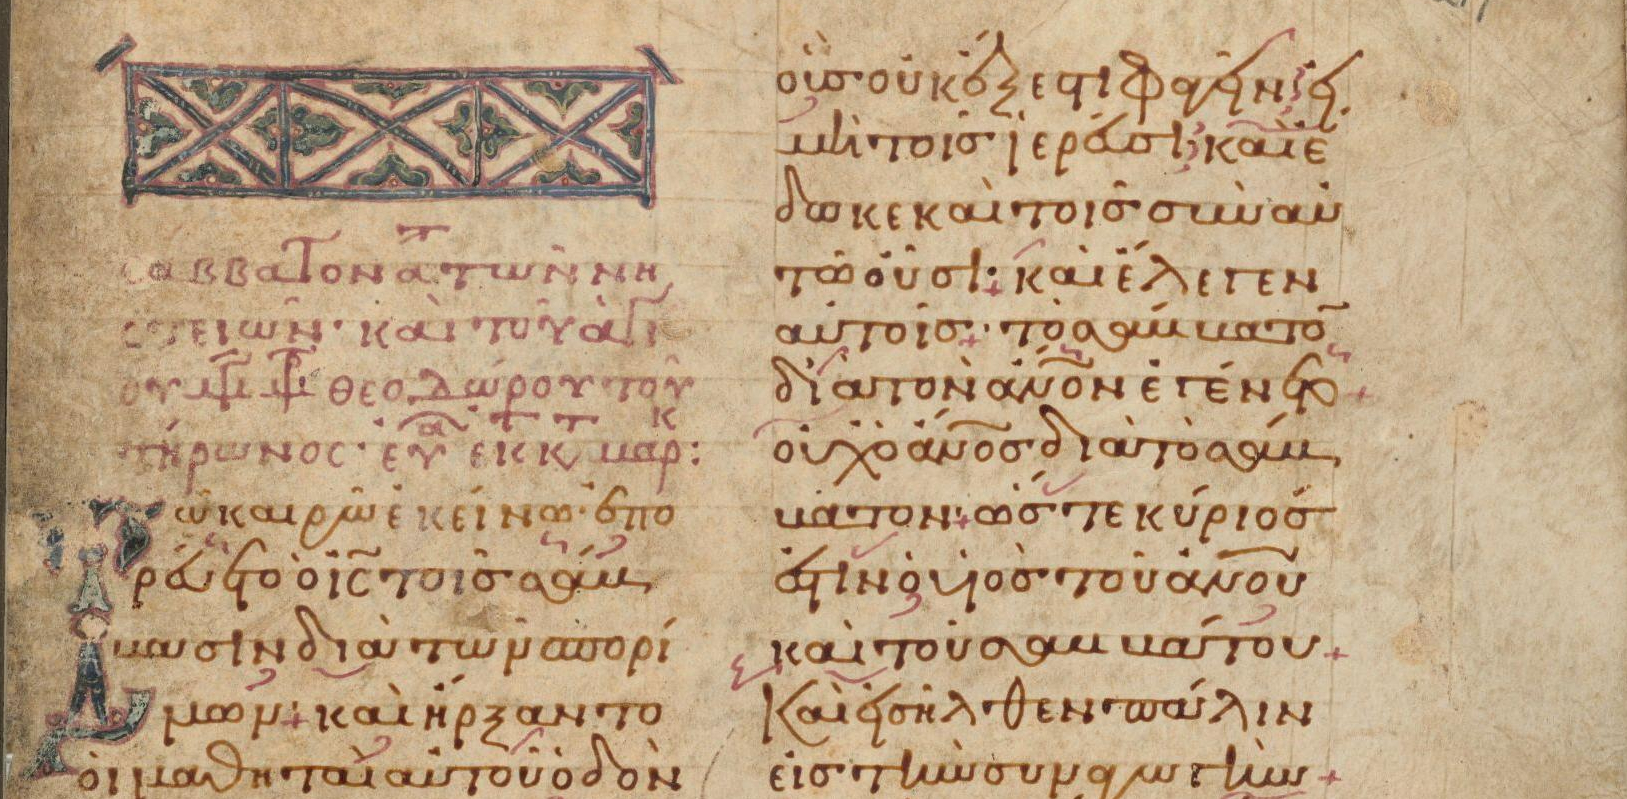 σαββατον α των νη
στειων· και του αγι
ου μ μ θεοδώρου του
τήρωνος· ευα εκ κ μαρ:
ῶ καιρῶ ἐκείνω· ἐπο
ρεύετο ὁ ις τοῖς σάβ
βασιν διὰ τῶν σπορί
μων + καὶ ἤρξαντο
οἱ μαθηταὶ αὐτοῦ ὁδὸν
οὓς οὐκ ἔξεστι φαγεῖν εἰ
μὴ τοῖς ἱερεῦσι; καὶ ἔ
δωκε καὶ τοῖς σὺν αὐ
τῶ οὖσι; καὶ ἔλεγεν
αὐτοῖς· τὸ σάββατον
διὰ τὸν ἄνον ἐγένετο +
οὐχ ὁ ἄνος διὰ τὸ σάβ
βατον + ὥστε κύριός
ἐστιν ὁ υἱὸς τοῦ ἀνου
καὶ τοῦ σαββάτου +
Καὶ εἰσῆλθεν πάλιν
εἰς τὴν συναγωγὴν +